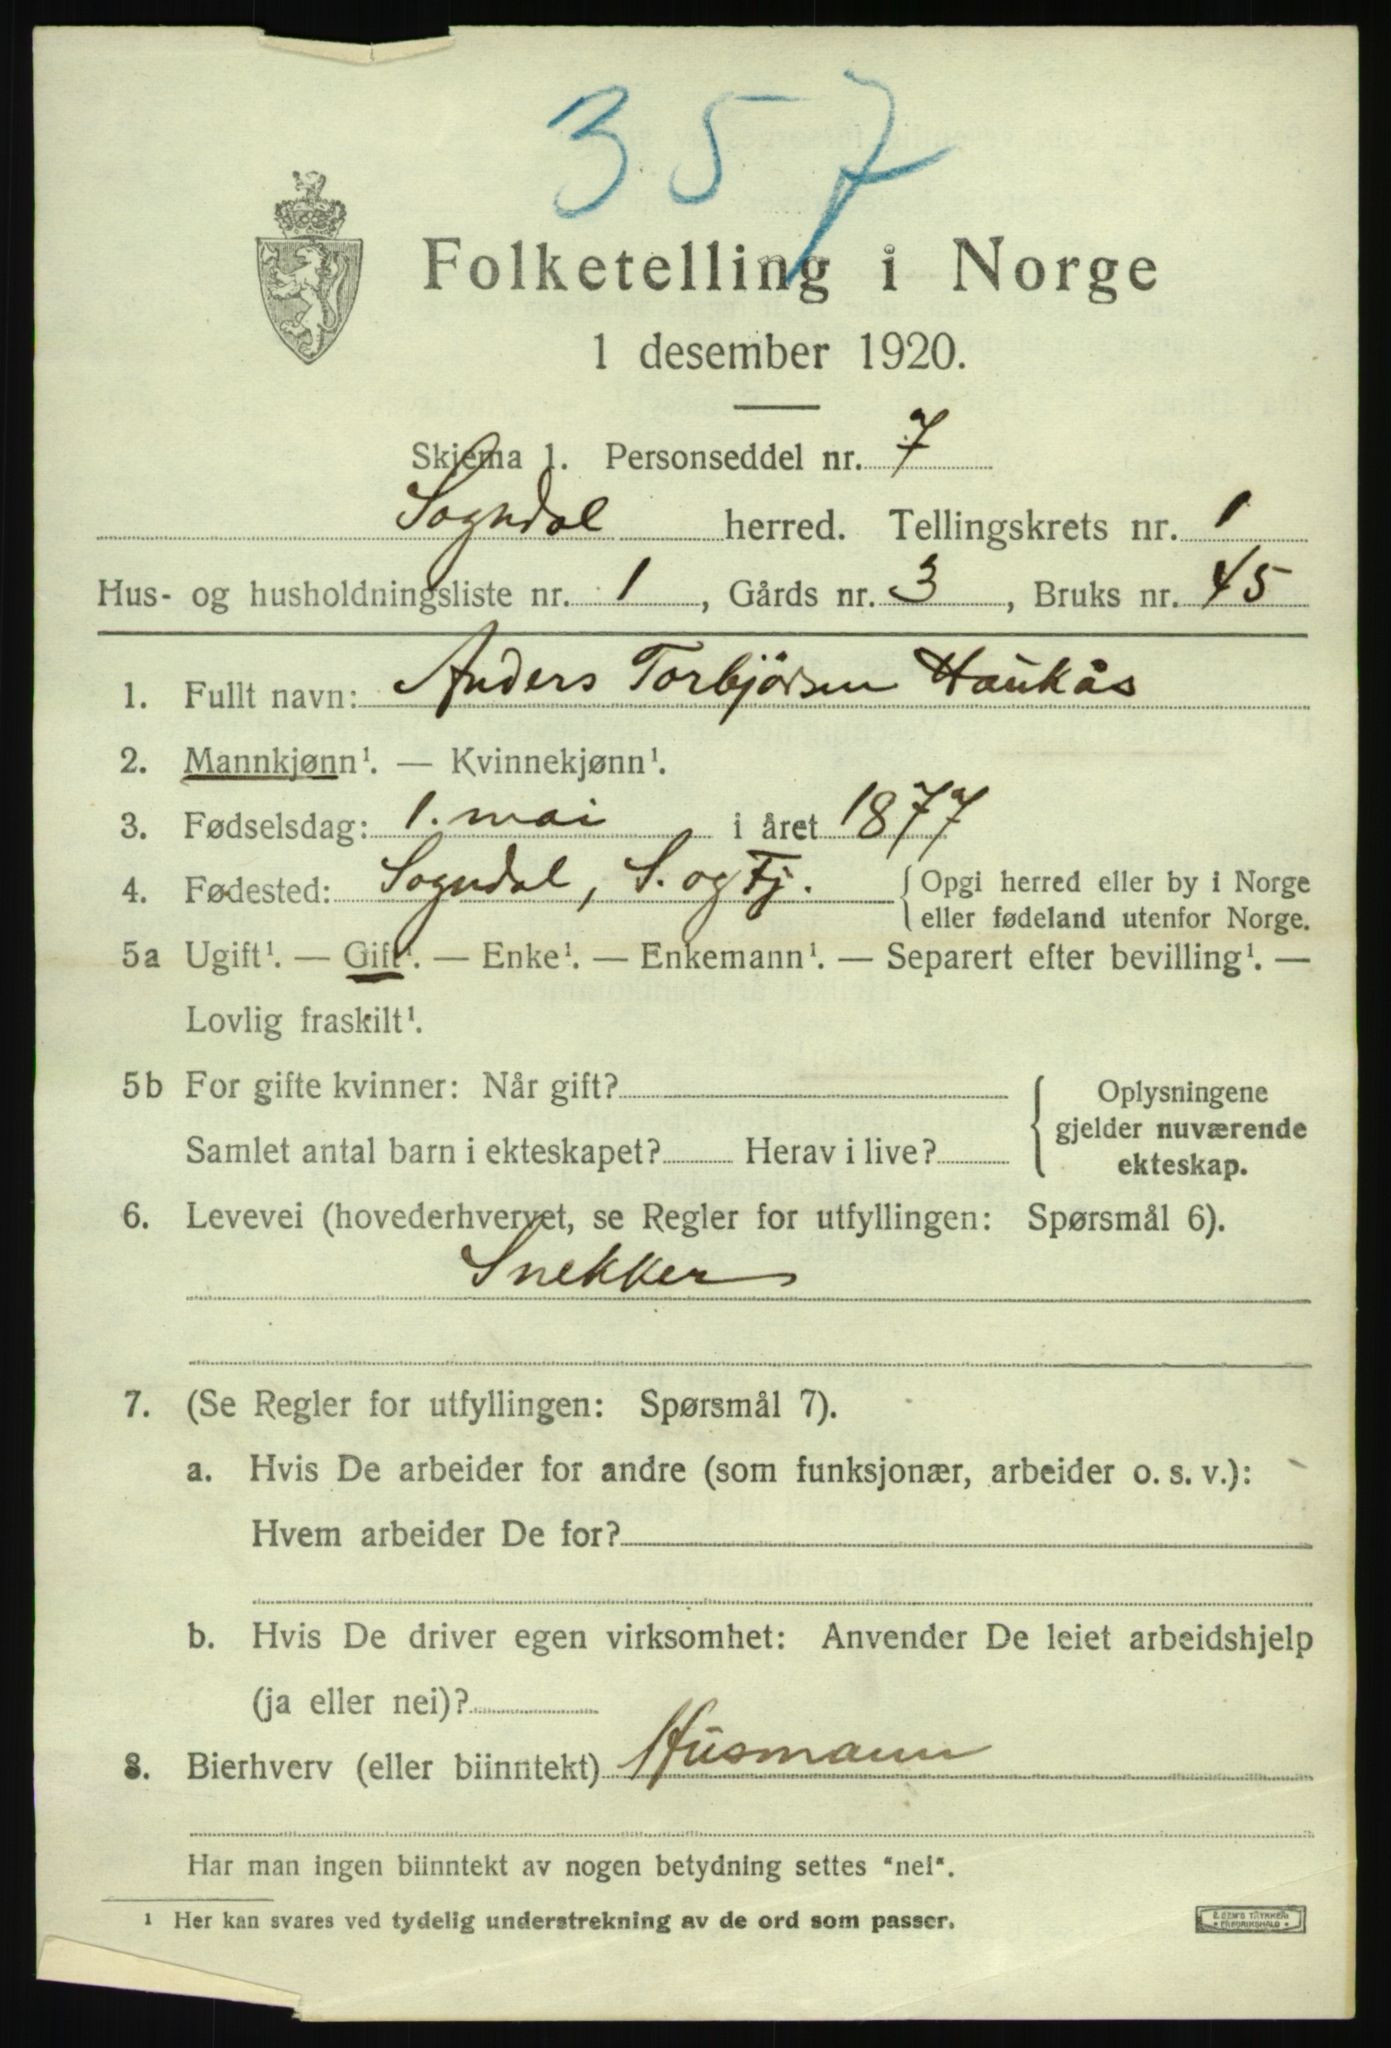 357
Folketelling i Norge
1 desember 1920.
Skjema 1. Personseddel nr. 7
Sogndal herred. Tellingskrets nr. 1
Hus- og husholdningsliste nr. 1, Gårds nr. 3, Bruks nr. 45
1. Fullt navn: Anders Torbjørsen Haukås
2. Mannkjønn¹. — Kvinnekjønn¹.
3. Fødselsdag: 1. mai i året 1877
4. Fødested: Sogndal, S. og Fj. { Opgi herred eller by i Norge
eller fødeland utenfor Norge.
5a Ugift¹. — Gift¹. — Enke¹. — Enkemann¹. — Separert efter bevilling¹. —
Lovlig fraskilt¹.
5b For gifte kvinner: Når gift? { Oplysningene
gjelder nuværende
Samlet antal barn i ekteskapet? Herav i live?
ekteskap.
6. Levevei (hovederhvervet, se Regler for utfyllingen: Spørsmål 6).
Snekker
7. (Se Regler for utfyllingen: Spørsmål 7).
a. Hvis De arbeider for andre (som funksjonær, arbeider o. s. v.):
Hvem arbeider De for?
b. Hvis De driver egen virksomhet: Anvender De leiet arbeidshjelp
(ja eller nei)?
8. Bierhverv (eller biinntekt) Husmann
Har man ingen biinntekt av nogen betydning settes "nei".
¹ Her kan svares ved tydelig understrekning av de ord som passer.